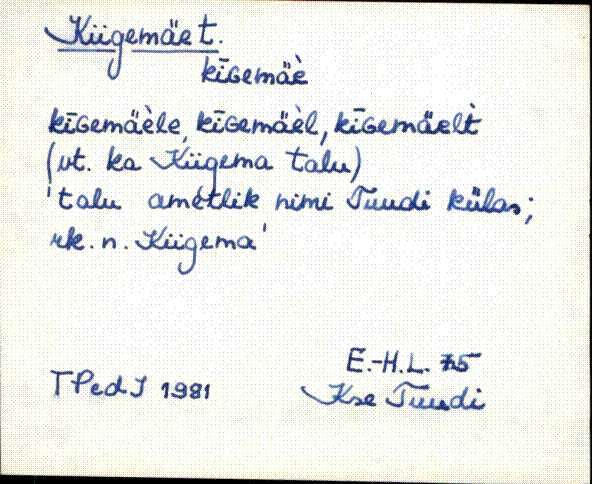 Kiigemäe t.
kīGemäè
kīGemäèle, kīGemäèl, kīGemäelt̀
(vt. ka Kiigema talu)
'talu ametlik nimi Tuudi külas;
rk. n. Kiigema'
E.-H.L. 75
TPedI 1981
Kse Tuudi